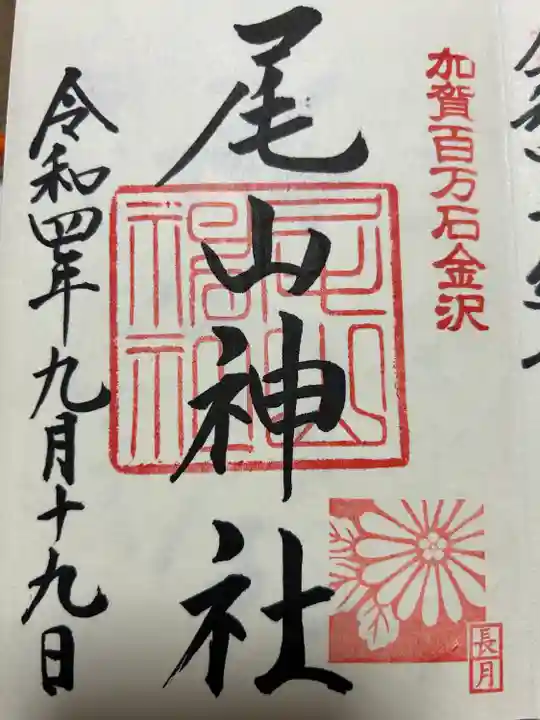 加賀百万石金沢
尾山神社
尾山神社
長月
令和四年九月十九日